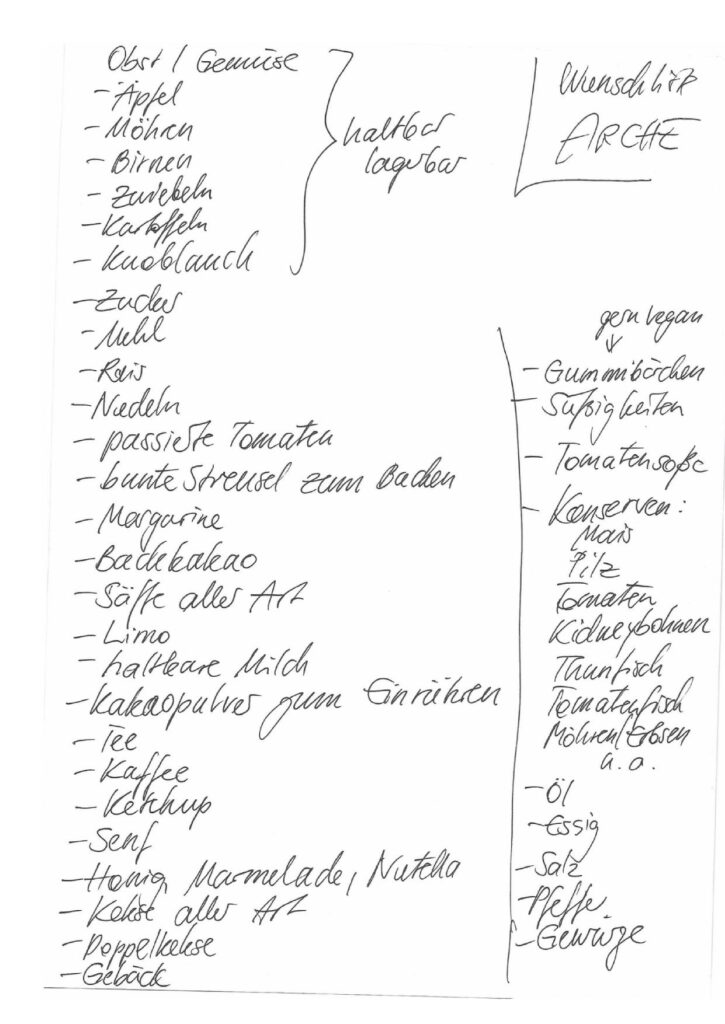 Wunschliste
ARCHE
Obst / Gemüse
- Äpfel
- Möhren
- Birnen
- Zwiebeln
- Kartoffeln
- Knoblauch
haltbar
lagerbar
- Zucker
- Mehl
- Reis
- Nudeln
- passierte Tomaten
- bunte Streusel zum Backen
- Margarine
- Backkakao
- Säfte aller Art
- Limo
- haltbare Milch
- Kakaopulver zum Einrühren
- Tee
- Kaffee
- Ketchup
- Senf
- Honig, Marmelade, Nutella
- Kekse aller Art
- Doppelkekse
- Gebäck
gern vegan
- Gummibärchen
- Süßigkeiten
- Tomatensoße
- Konserven:
Mais
Pilz
Tomaten
Kidneybohnen
Thunfisch
Tomatenfisch
Möhren/Erbsen
u.a.
- Öl
- Essig
- Salz
- Pfeffer
- Gewürze